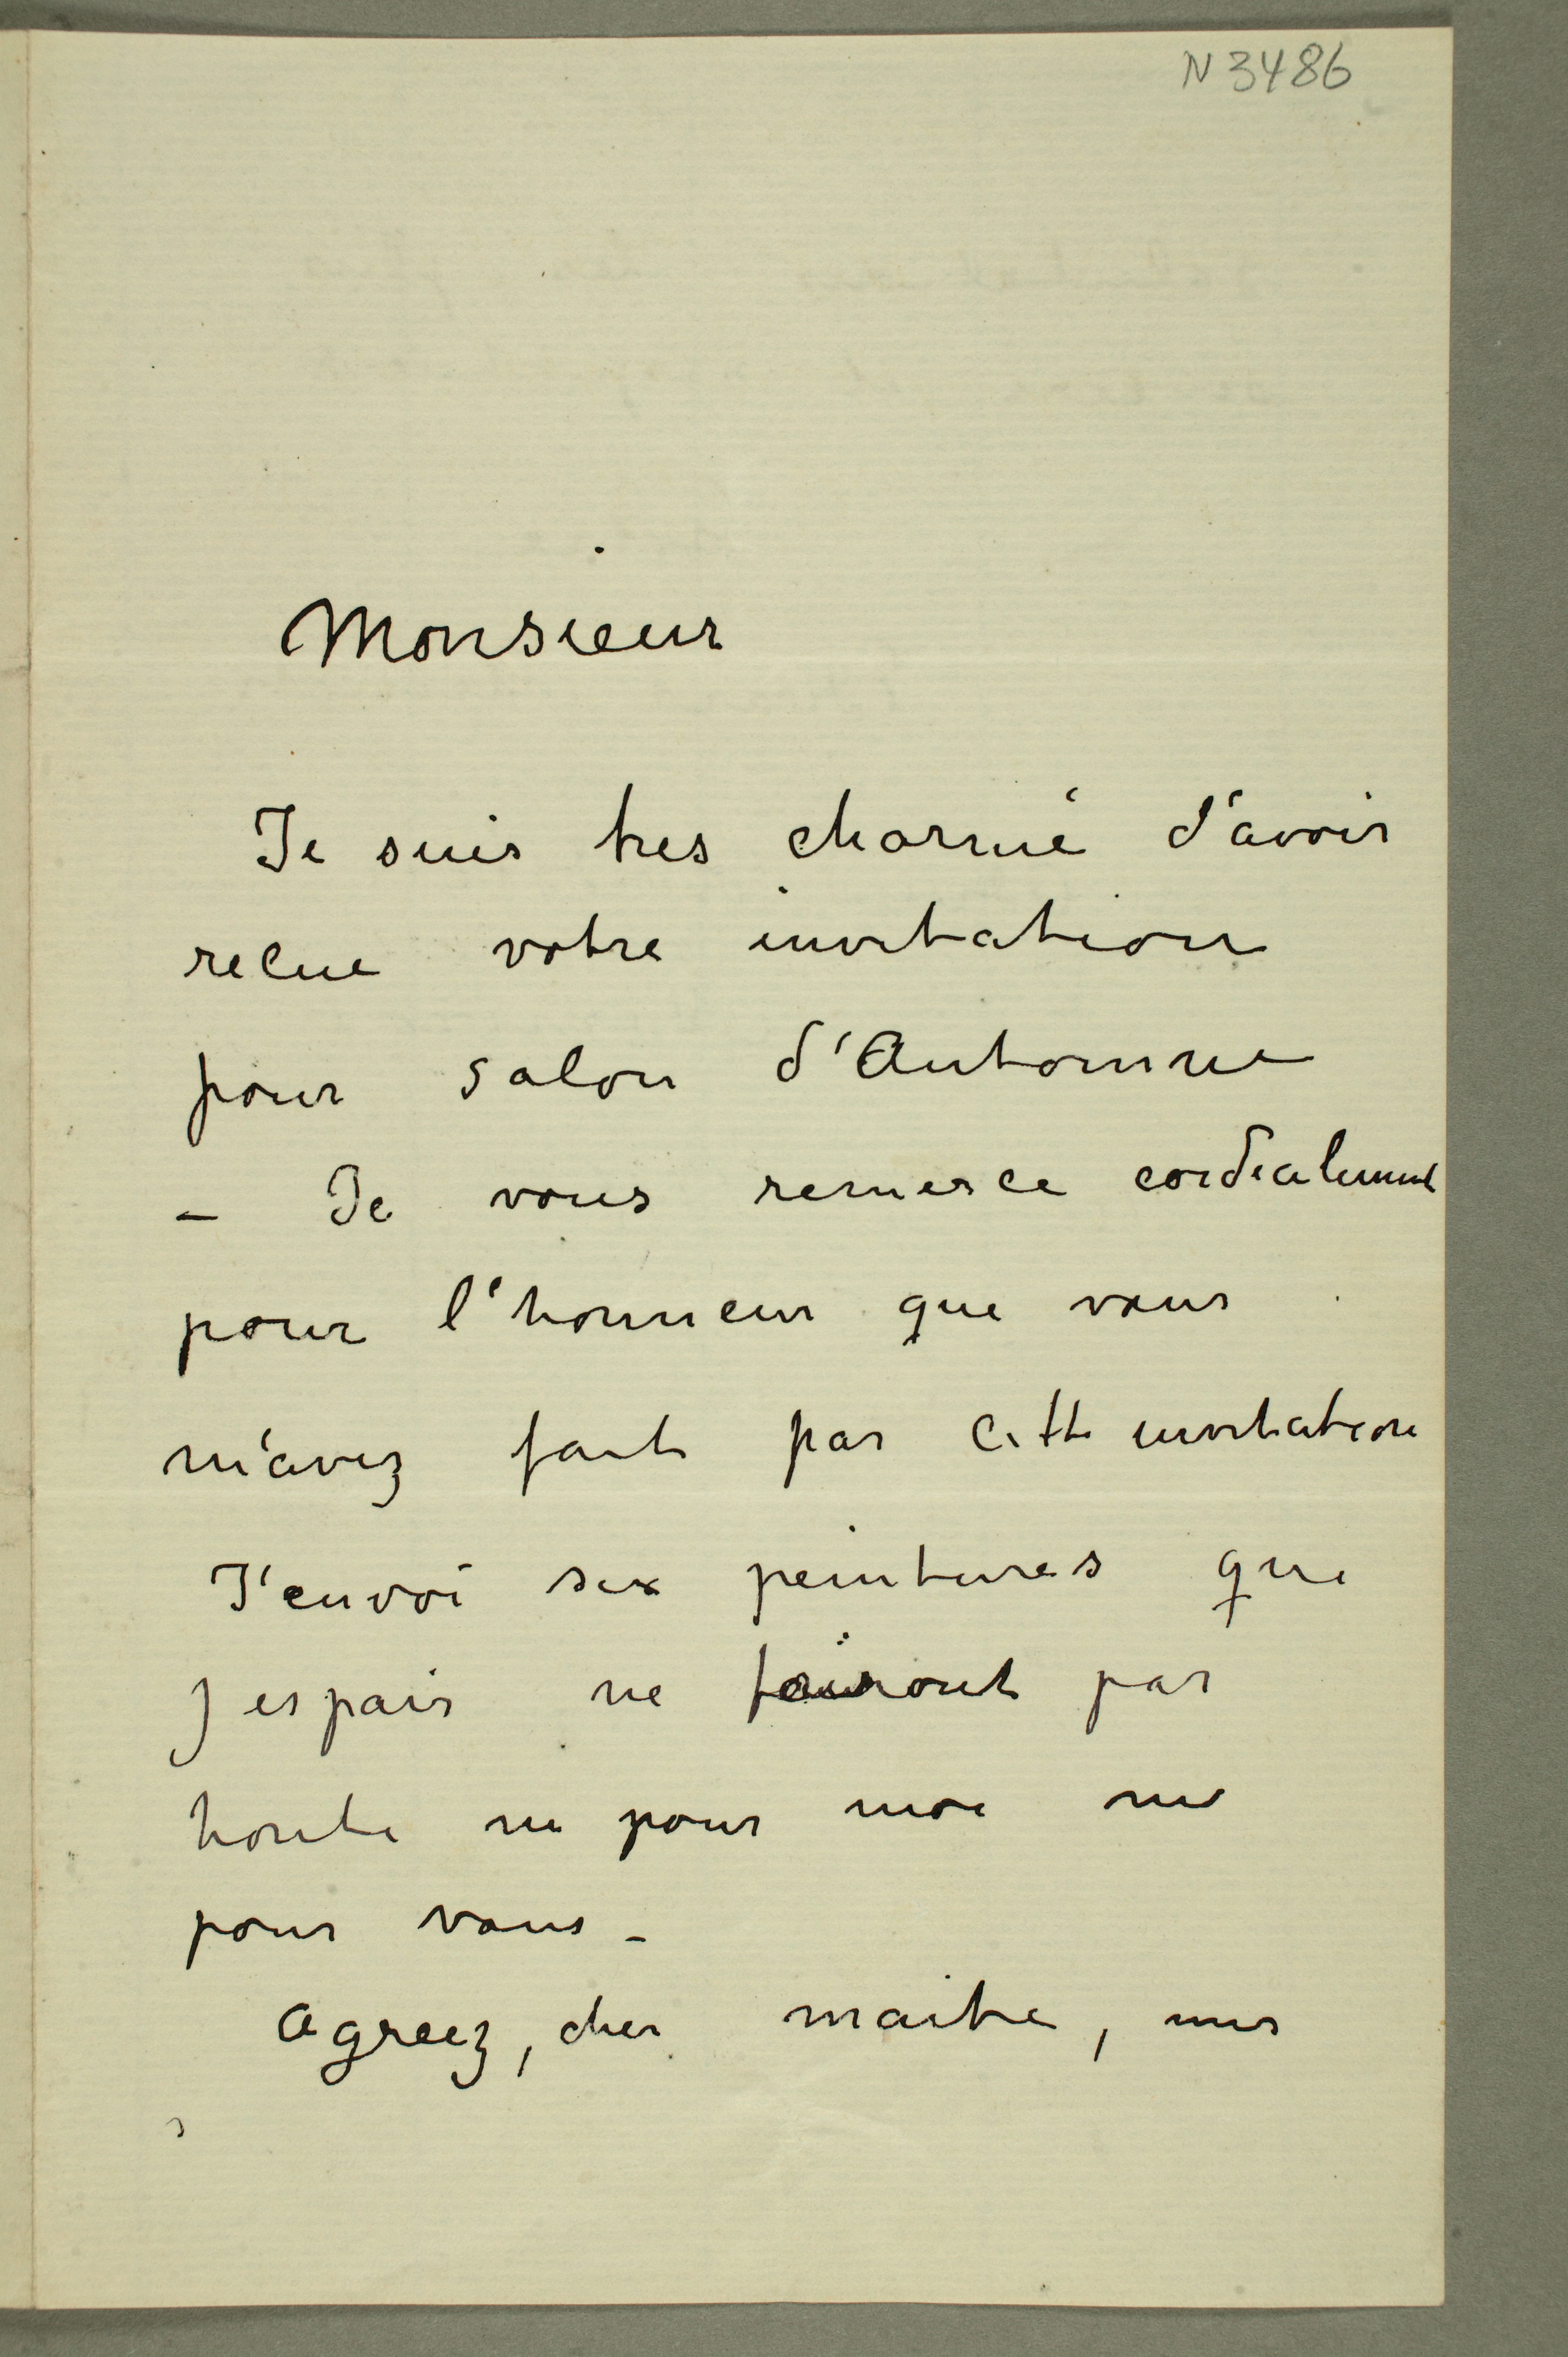 N 3486
Monsieur
Je suis tres charmé d'avoir
recue votre invitation
pour salon d'Automne
– Je vous remerce cordialement
pour l'honneur que vous
m'avez fait par cette invitation
J'envoi six peintures que
j espair ne fairont pas
honte ni pour moi ni
pour vous –
Agreez, cher maitre, mes